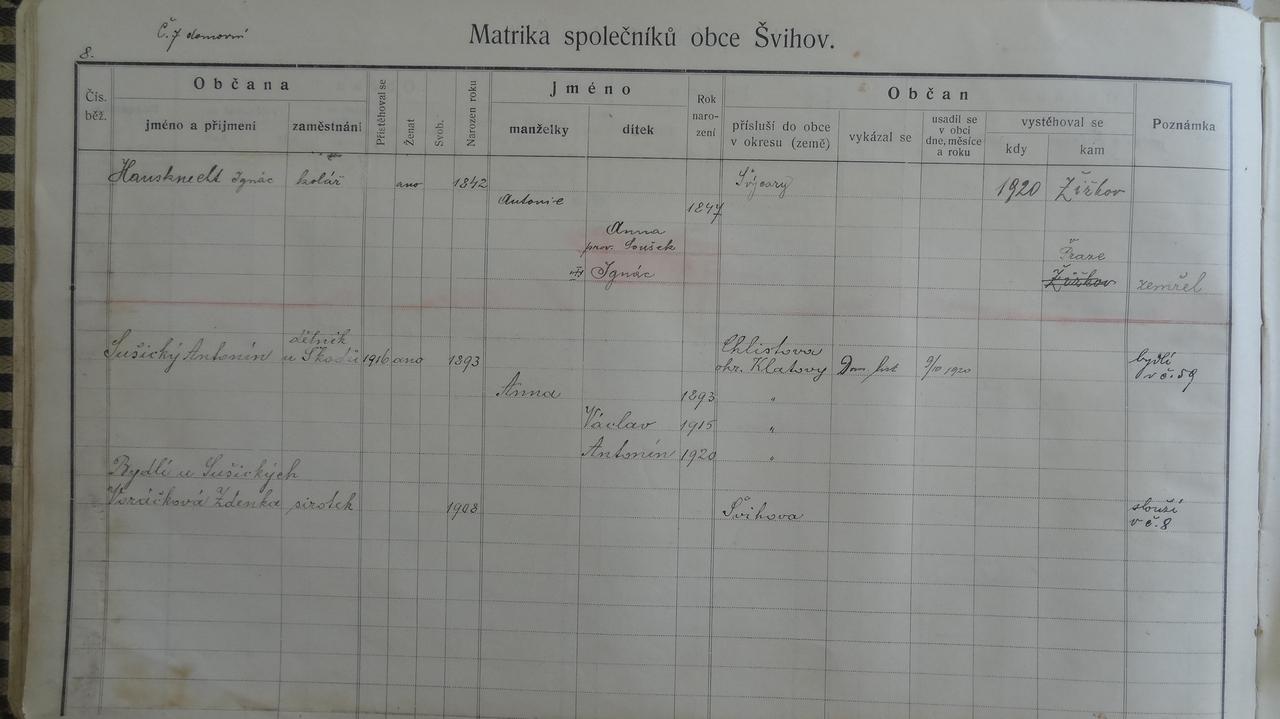 Č. 7 domovní
Matrika společníků obce Švihov.
8.
Čís. běž.
Občana
jméno a příjmení
zaměstnání
Přistěhoval se
Ženat
Svob.
Narozen roku
Jméno
manželky
dítek
Rok naro- zení
Občan
přísluší do obce v okresu (země)
vykázal se
usadil se v obci dne, měsíce a roku
vystěhoval se
kdy
kam
Poznámka
Hausknecht Ignác kolář ano 1842 Švýcary 1920 Žižkov
Antonie 1847
Anna
prov. Soušek
v Praze
Ignác Žižkov zemřel
dělník
Sušický Antonín u Škodů 1916 ano 1893 Chlistova
okr. Klatovy Dom. list 9/III 1920 bydlí
v č. 59
Anna 1893 "
Václav 1915 "
Antonín 1920 "
Bydlí u Sušických
Voráčková Zdenka sirotek 1908 Švihova slouží
v č. 8